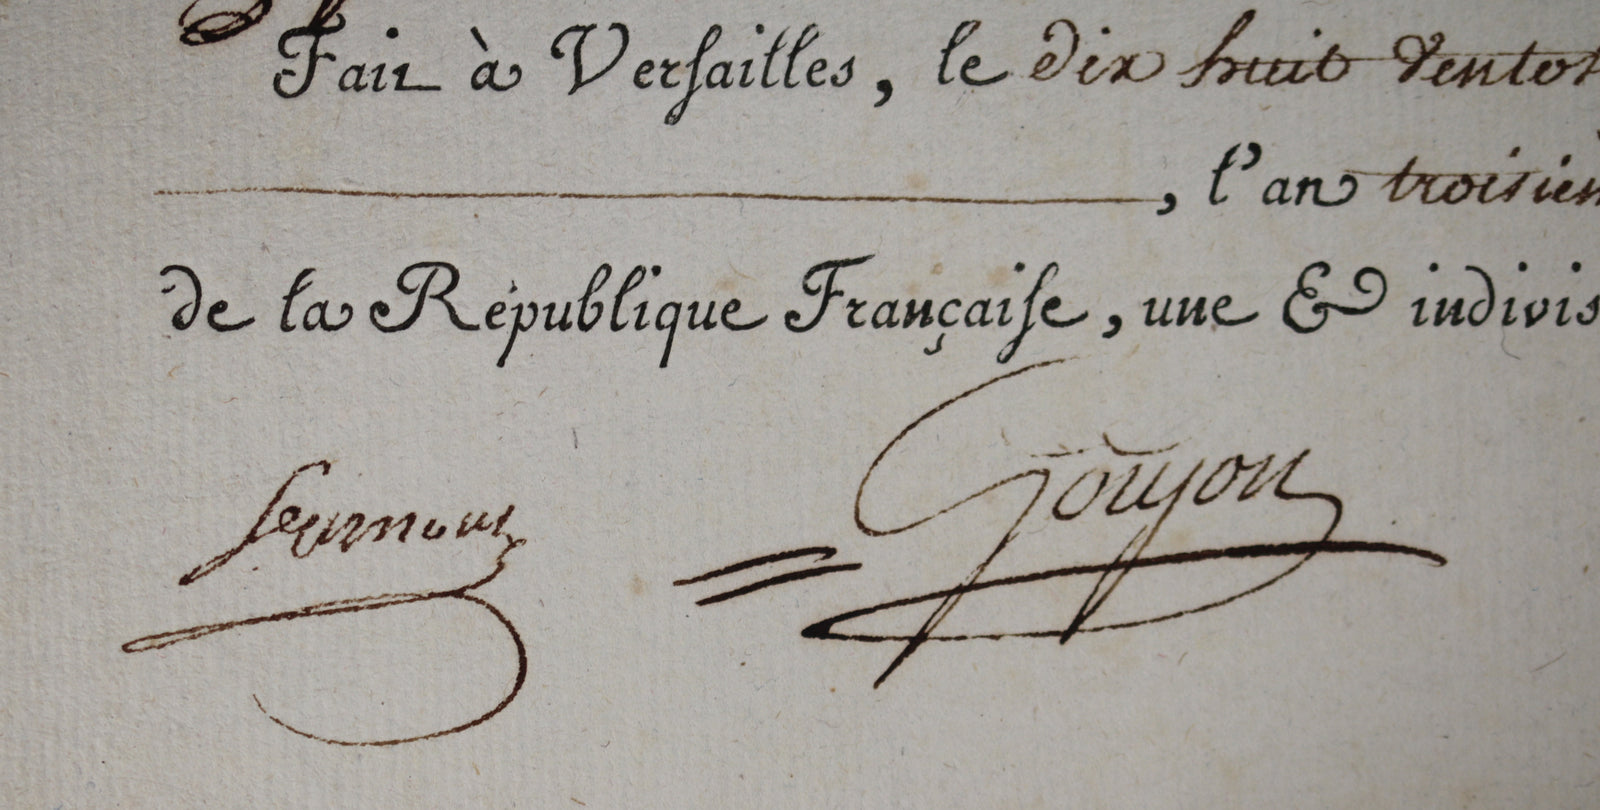 Fait à Versailles, le dix huit Ventos
, l'an troisiem
de la République Françaiſe, une & indivis
Goujon